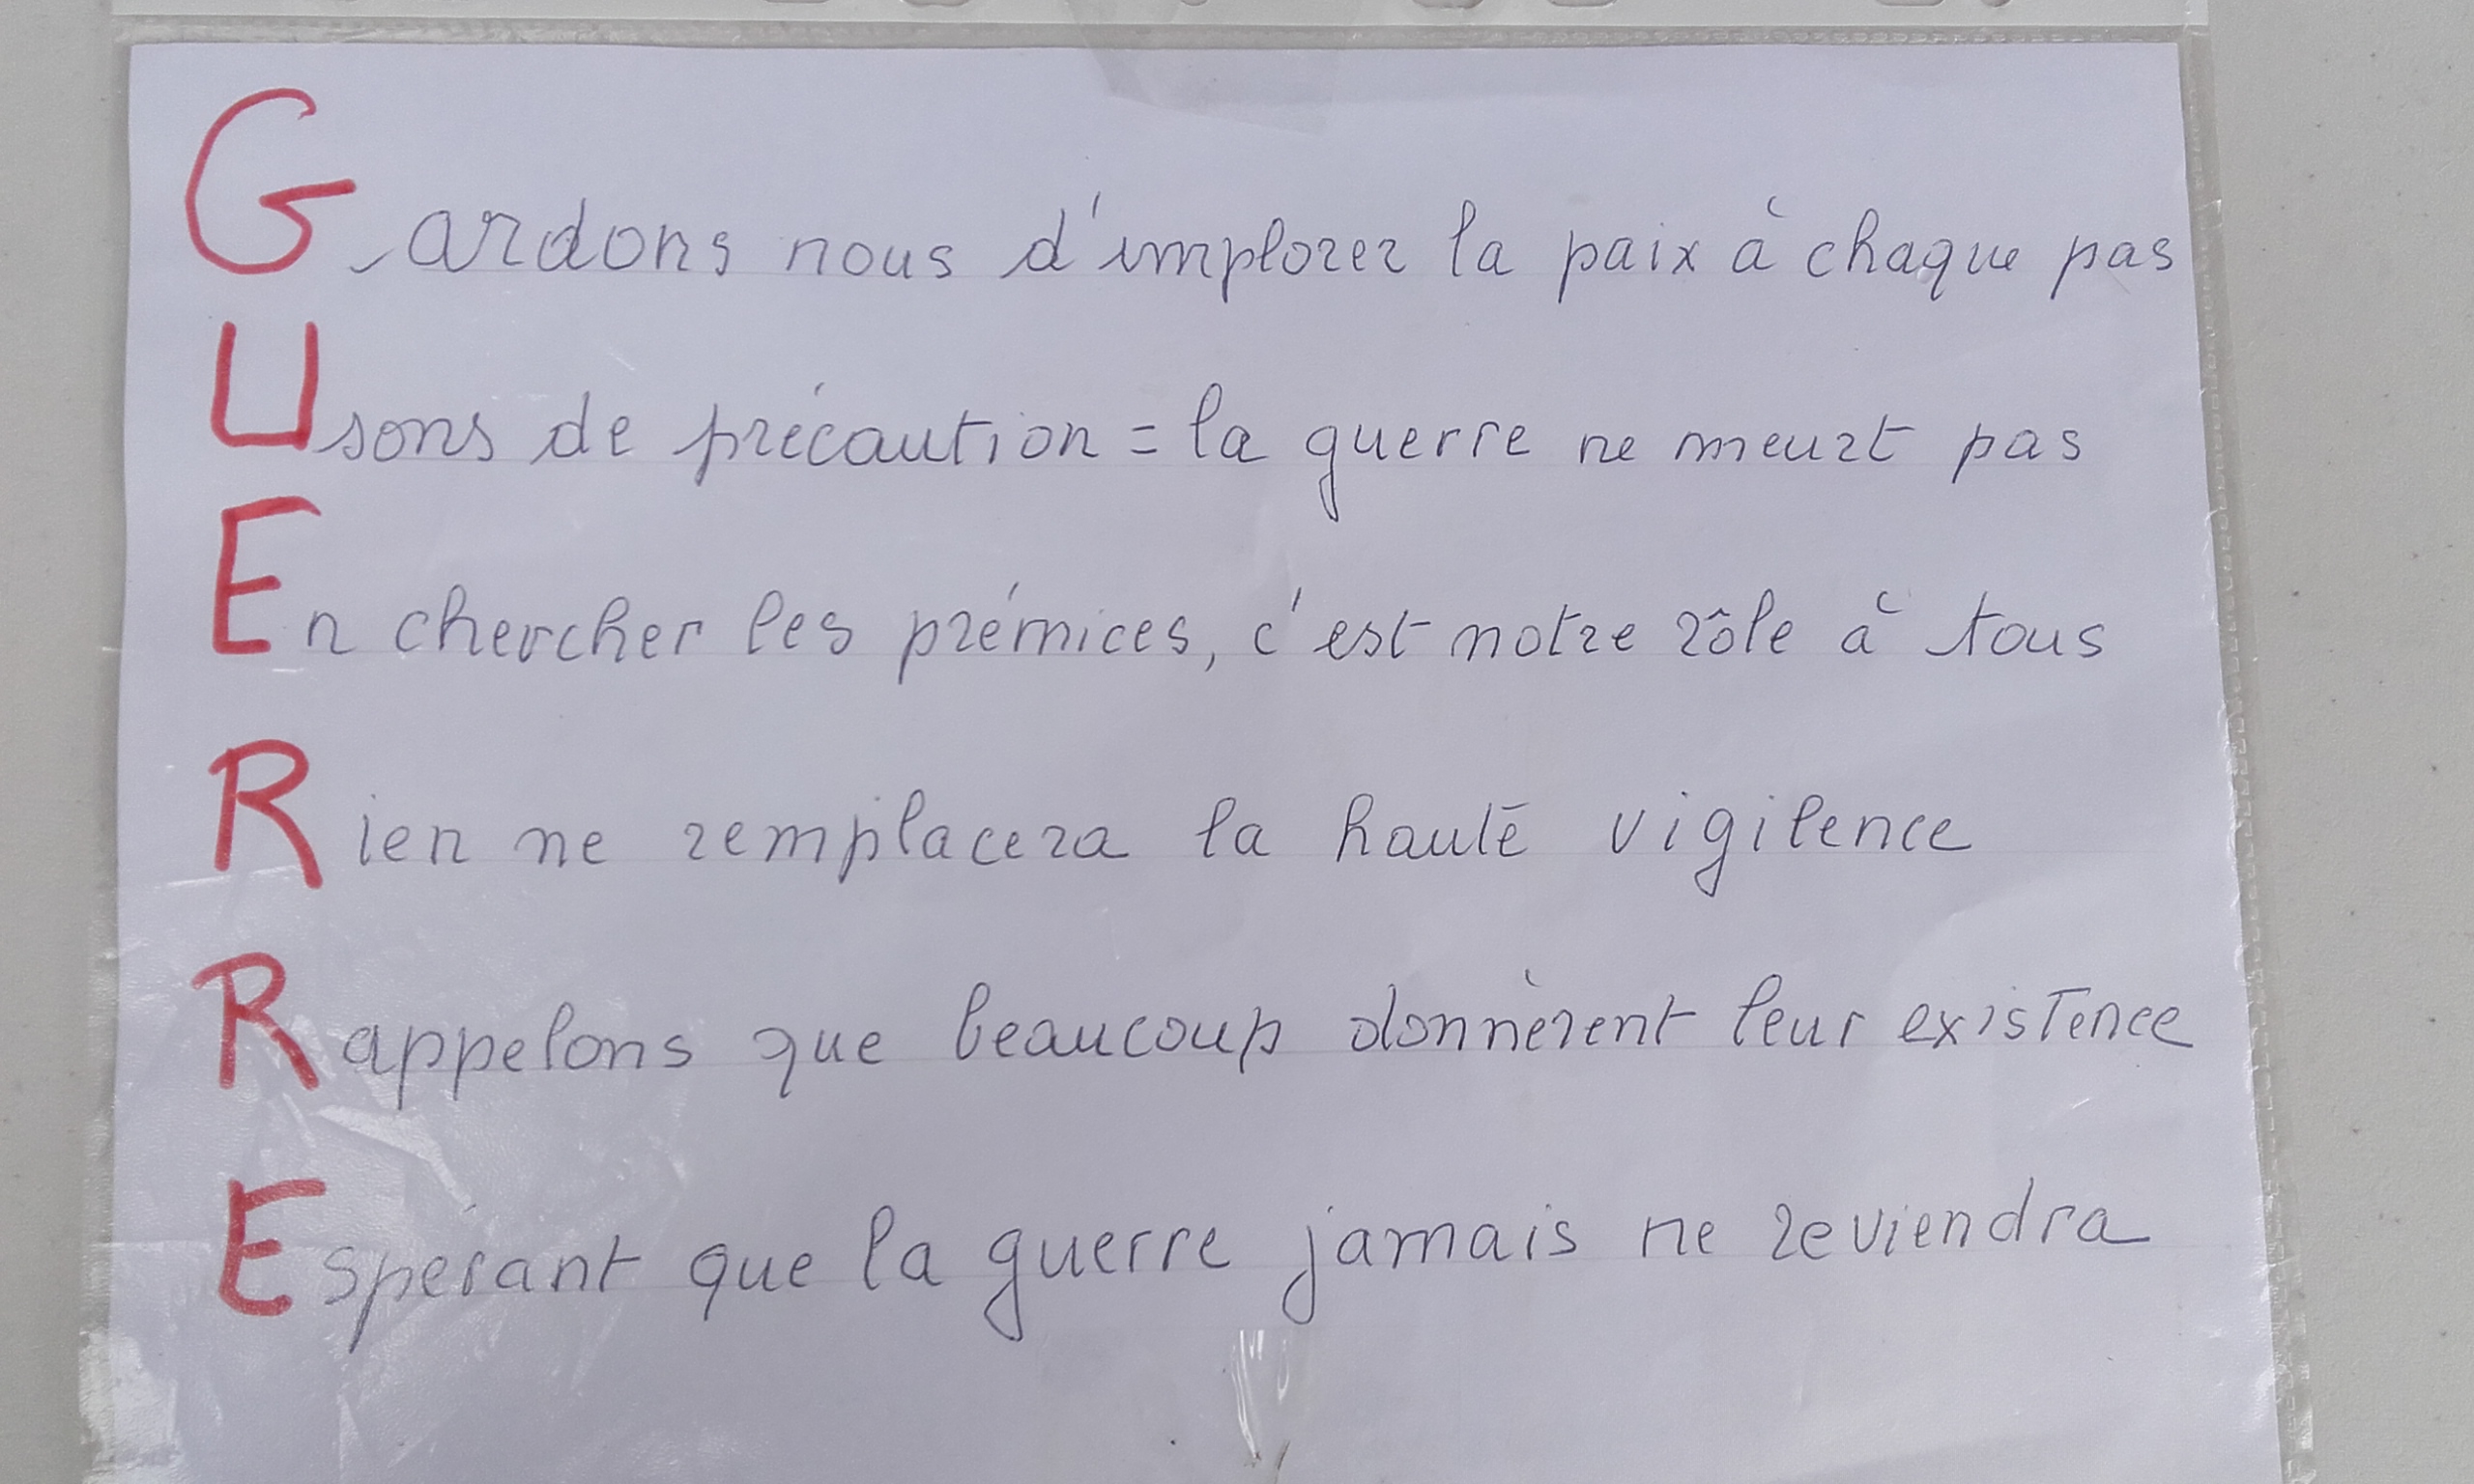 Gardons nous d'implorer la paix à chaque pas
Usons de précaution = la guerre ne meurt pas
En chercher les prémices, c'est notre rôle à tous
Rien ne remplacera la haute vigilence
Rappelons que beaucoup donnèrent leur existence
Espérant que la guerre jamais ne reviendra